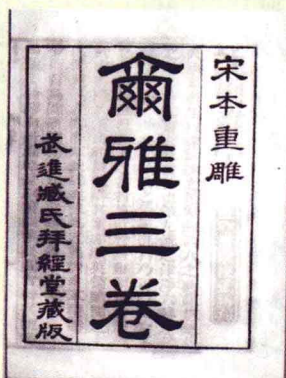 宋本重雕
爾雅三卷
武進臧氏拜經堂藏版